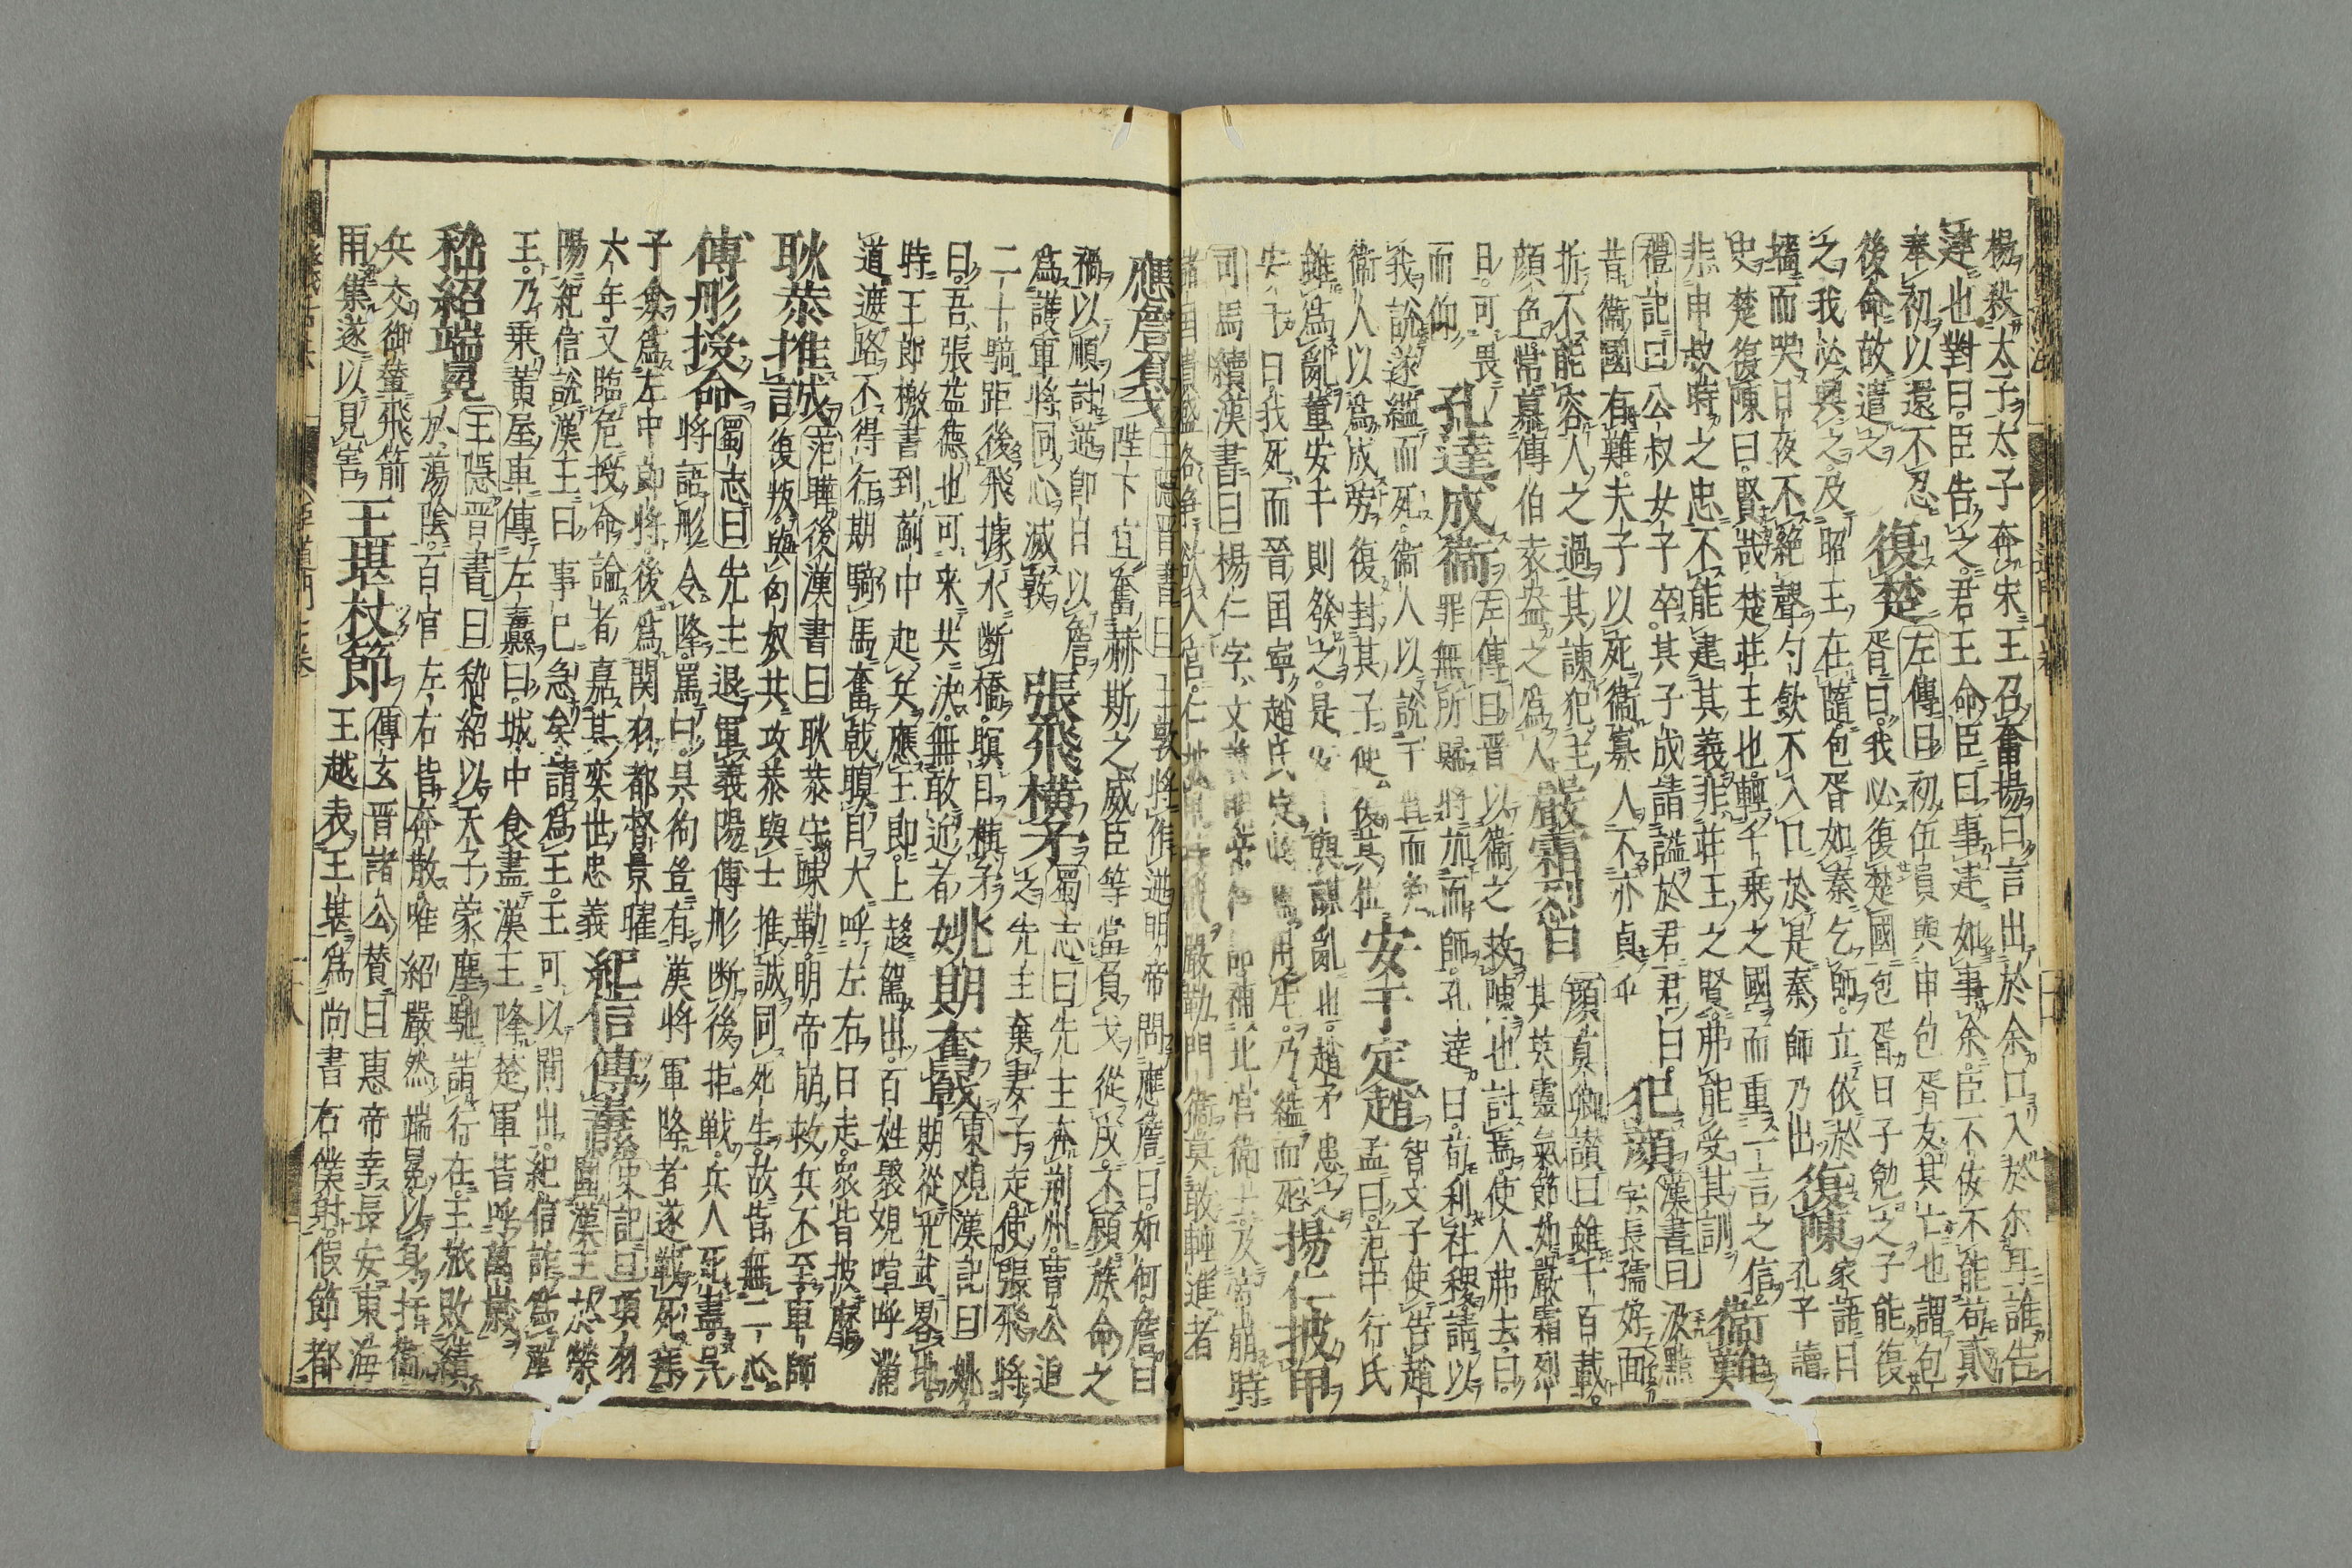 楊殺太子太子奔宋王召奮揚曰言出於余口入於尔耳誰告
建也對曰臣告之君王命臣曰事建如事余臣不佞不能苟貳
奉初以還不忍
後命故遣之
復楚
左傳曰初伍員與申包胥友其亡也謂包
胥曰我必復楚國包胥曰子勉之子能復
之我必興之及昭王在隨包胥如秦乞師立依於
墻而哭日夜不絶聲勺飲不入口於是秦師乃出
復陳
家語曰
孔子讀
史楚復陳曰賢哉楚莊王也輕千乗之國而重一言之信
非申叔時之忠不能建其義非莊王之賢弗能受其訓
衞難
禮記曰公叔女子卒其子成請謚於君君曰
昔衞國有難夫子以死衞寡人不亦貞乎
犯顔
漢書曰汲黯
字長孺好面
折不能容人之過其諫犯主
顔色常慕傳伯袁盎之爲人
嚴霜烈日
顔真卿讃曰雖千百載
其英靈氣節如嚴霜烈
日可畏
而仰
孔達成衞
左傳曰晋以衞之救陳也討焉使人弗去曰
罪無所歸將加而師孔達曰苟利社稷請以
我説遂縊而死衞人以説于晋而免
衞人以爲成勞復封其子使復其位
安于定趙
智文子使告趙
孟曰范中行氏
雖爲亂董安于則發之是安于與謀亂也趙孟患之
安于曰我死而晋国寧趙氏定將焉用生乃縊而死
揚仁披甲
司馬續漢書曰楊仁字文義明帝時補北宮衞士及帝崩時
諸馬貴盛各爭欲入宮仁披甲持戟嚴勒門衞莫敢輕進者
應詹負戈
王隱晋書曰王敦將作逆明帝問應詹曰如何詹曰
陛下宜奮赫斯之威臣等當負戈從戎不顧族命之
禍以順討逆即日以詹
爲護軍將同心滅敦
張飛横矛
蜀志曰先主奔荊州曹公追
之先主棄妻子走使張飛將
二十騎距後飛據水断橋瞋目横矛
曰吾張益德也可来共決無敢近者
姚期奮戟
東觀漢記曰姚
期從光武略地
時王郎檄書到薊中起兵應王郎上趍駕出百姓聚観喧呼滿
道遮路不得行期騎馬奮戟瞋目大呼左右曰走衆皆披靡
耿恭推誠
范曄後漢書曰耿恭守踈勒明帝崩救兵不至車師
復叛與匈奴共攻恭與士推誠同死生故皆無二心
傅肜授命
蜀志曰先主退軍義陽傅肜断後拒戦兵人死盡呉
将語肜令降罵曰呉狗豈有漢将軍降者遂戰死
子僉爲左中郎将後爲関羽都督景耀
六年又臨危授命論者嘉其奕世忠義
紀信傳纛
史記曰項羽
圍漢王於滎
陽紀信説漢王曰事已急矣請爲王王可以間出紀信詐爲漢
王乃乗黄屋車傳左纛曰城中食盡漢王降楚軍皆呼萬歳
嵇紹端冕
王隱晋書曰嵇紹以天子蒙塵馳詣行在王旅敗績
於蕩陰百官左右皆奔散唯紹嚴然端冕以身捍衞
兵交御輦飛箭
雨集遂以見害
王堪杖節
傳玄晋諸公賛曰惠帝幸長安東海
王越表王堪爲尚書右僕射假節都